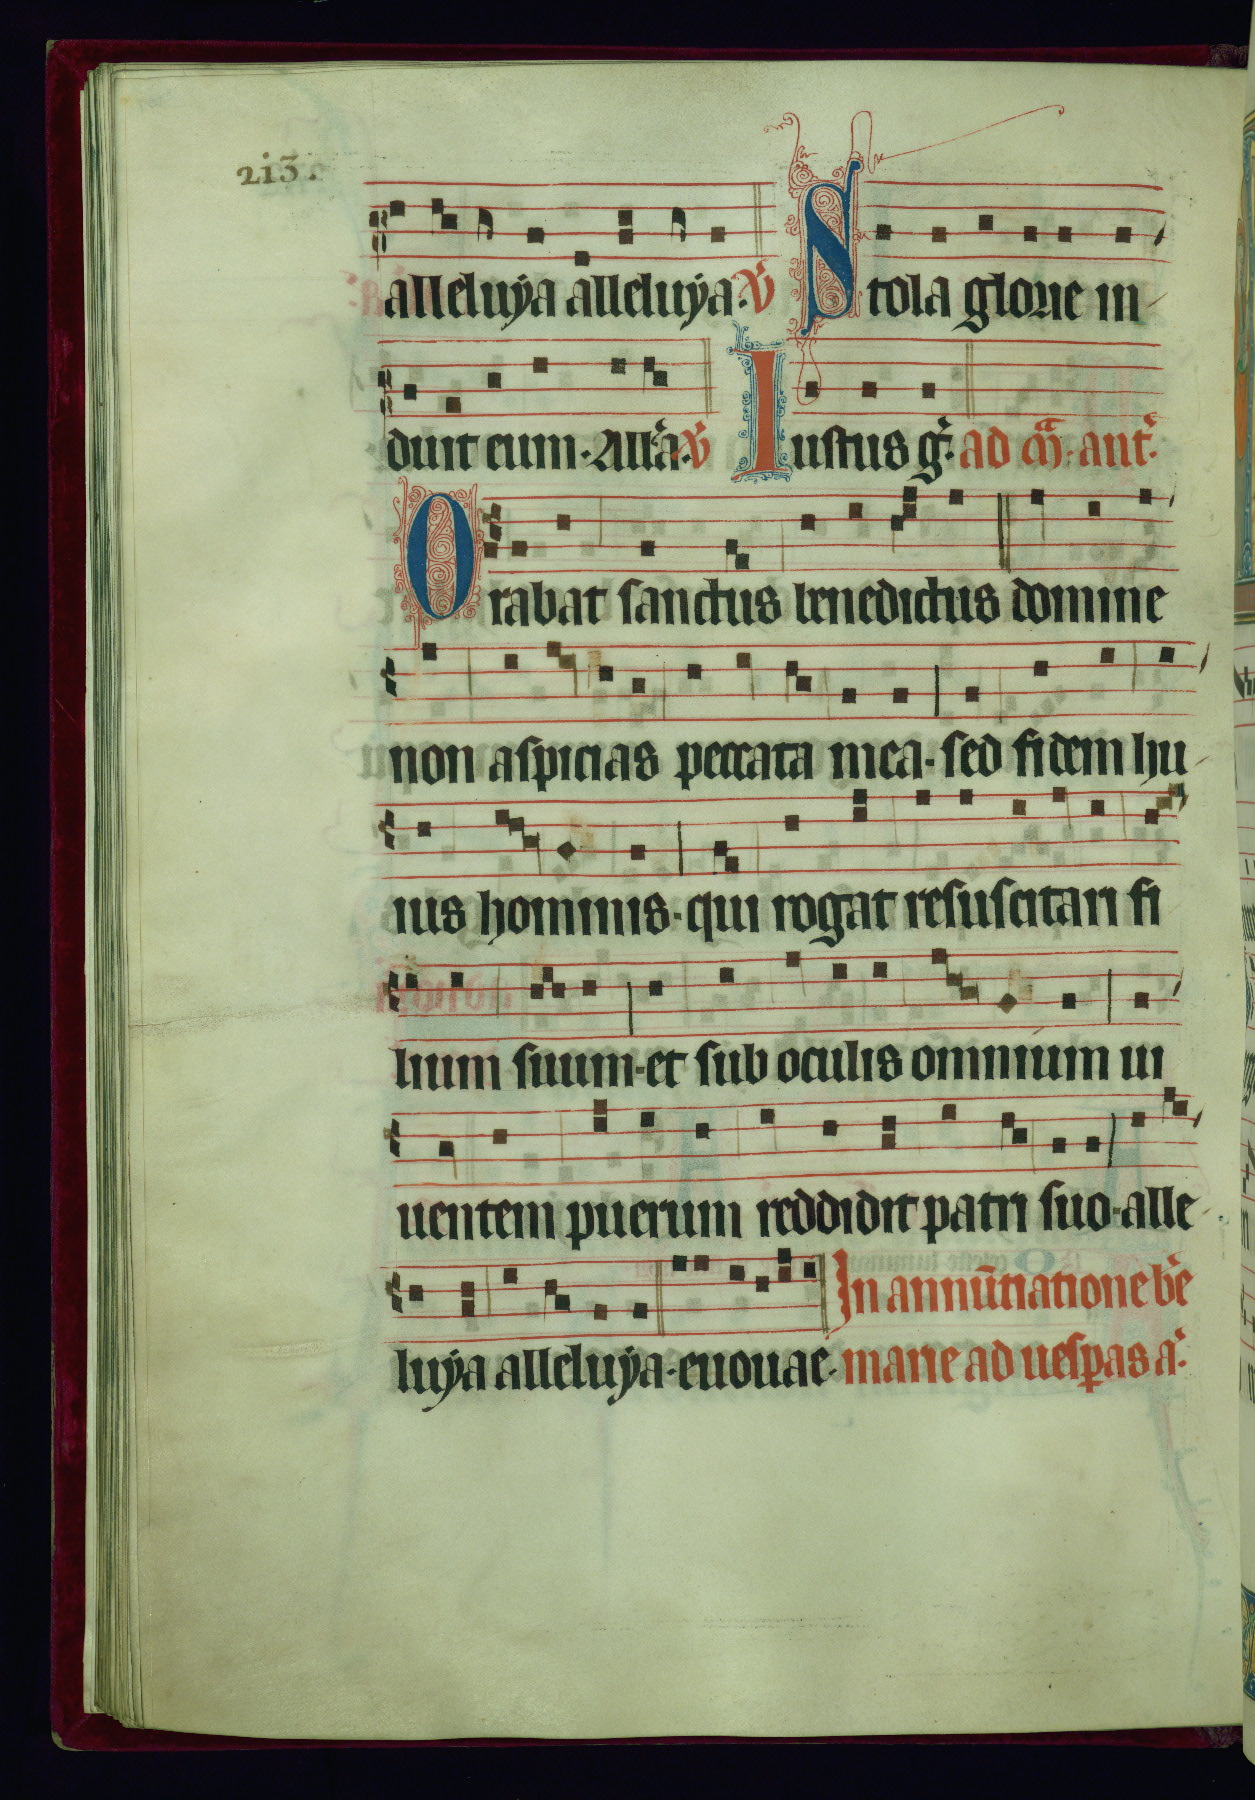 213.
alleluya alleluya. V̉ Stola glorie in
duit eum. All'a. V̉ Iustus g̉. ad m̄. ant̉.
Orabat sanctus benedictus domine
non aspicias peccata mea. sed fidem hu
ius hominis. qui rogat resuscitari fi
lium suum. et sub oculis omnium ui
uentem puerum reddidit patri suo. alle
luya alleluya. euouae. In annūtiatione b̉e
marie ad uesꝑas a̓.